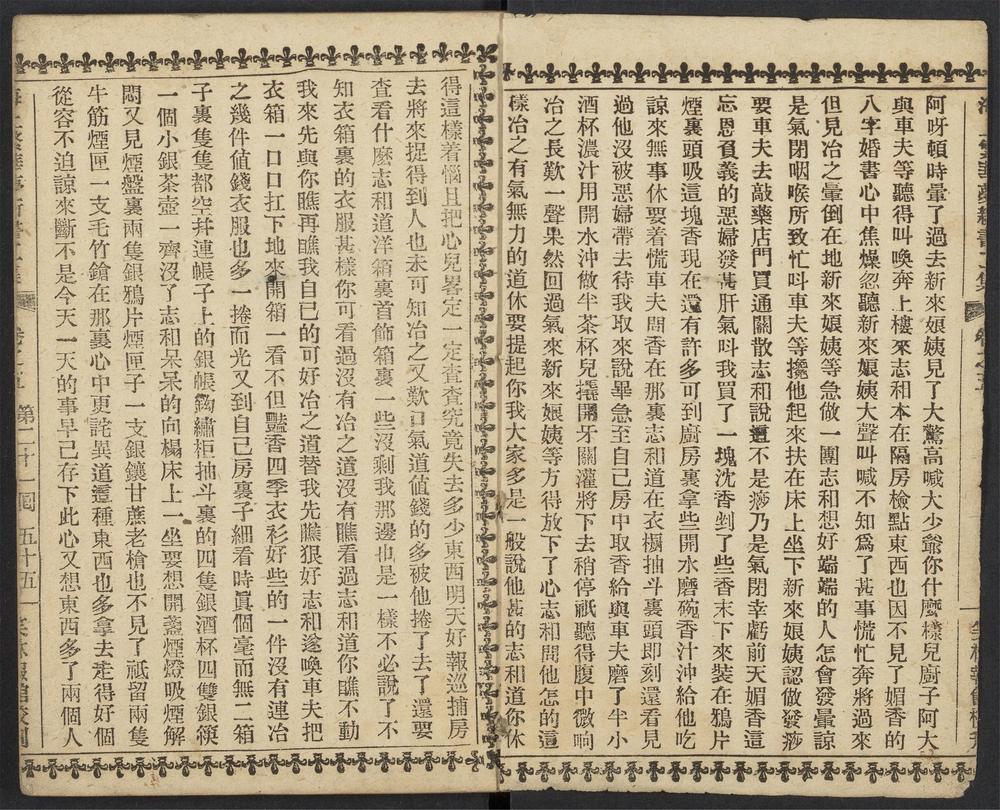 阿呀頓時暈了過去新來娘姨見了大驚高喊大少爺你什麼樣兒廚子阿大
與車夫等聽得叫喚奔上樓來志和本在隔房檢點東西也因不見了媚香的
八字婚書心中焦燥忽聽新來娘姨大聲叫喊不知爲了甚事慌忙奔將過來
但見冶之暈倒在地新來娘姨等急做一團志和想好端端的人怎會發暈諒
是氣閉咽喉所致忙呌車夫等攙他起來扶在床上坐下新來娘姨認做發痧
要車夫去敲藥店門買通關散志和說這不是痧乃是氣閉幸虧前天媚香這
忘恩負義的惡婦發甚肝氣呌我買了一塊沈香剉了些香末下來裝在鴉片
煙裏頭吸這塊香現在還有許多可到廚房裏拿些開水磨碗香汁沖給他吃
諒來無事休要着慌車夫問香在那裏志和道在衣櫥抽斗裏頭即刻還看見
過他沒被惡婦帶去待我取來說畢急至自己房中取香給與車夫磨了半小
酒杯濃汁用開水沖做半茶杯兒攇開牙關灌將下去稍停祇聽得腹中微响
冶之長歎一聲果然回過氣來新來娘姨等方得放下了心志和問他怎的這
樣冶之有氣無力的道休要提起你我大家多是一般說他甚的志和道你休
得這樣着惱且把心兒畧定一定查查究竟失去多少東西明天好報巡捕房
去將來捉得到人也未可知冶之又歎口氣道值錢的多被他捲了去了還要
查看什麼志和道洋箱裏首飾箱裏一些沒剩我那邊也是一樣不必說了不
知衣箱裏的衣服甚樣你可看過沒有冶之道沒有瞧看過志和道你瞧不動
我來先與你瞧再瞧我自己的可好冶之道替我先瞧狠好志和遂喚車夫把
衣箱一口口扛下地來開箱一看不但豔香四季衣衫好些的一件沒有連冶
之幾件值錢衣服也多一捲而光又到自己房裏子細看時眞個毫而無二箱
子裏隻隻都空并連帳子上的銀帳鉤繡柜抽斗裏的四隻銀酒杯四雙銀筷
一個小銀茶壺一齊沒了志和呆呆的向榻床上一坐要想開盞煙燈吸煙解
悶又見煙盤裏兩隻銀鴉片煙匣子一支銀鑲甘蔗老槍也不見了祇留兩隻
牛筋煙匣一支毛竹鎗在那裏心中更詫異道這種東西也多拿去走得好個
從容不迫諒來斷不是今天一天的事早已存下此心又想東西多了兩個人
第二十一回 五十五